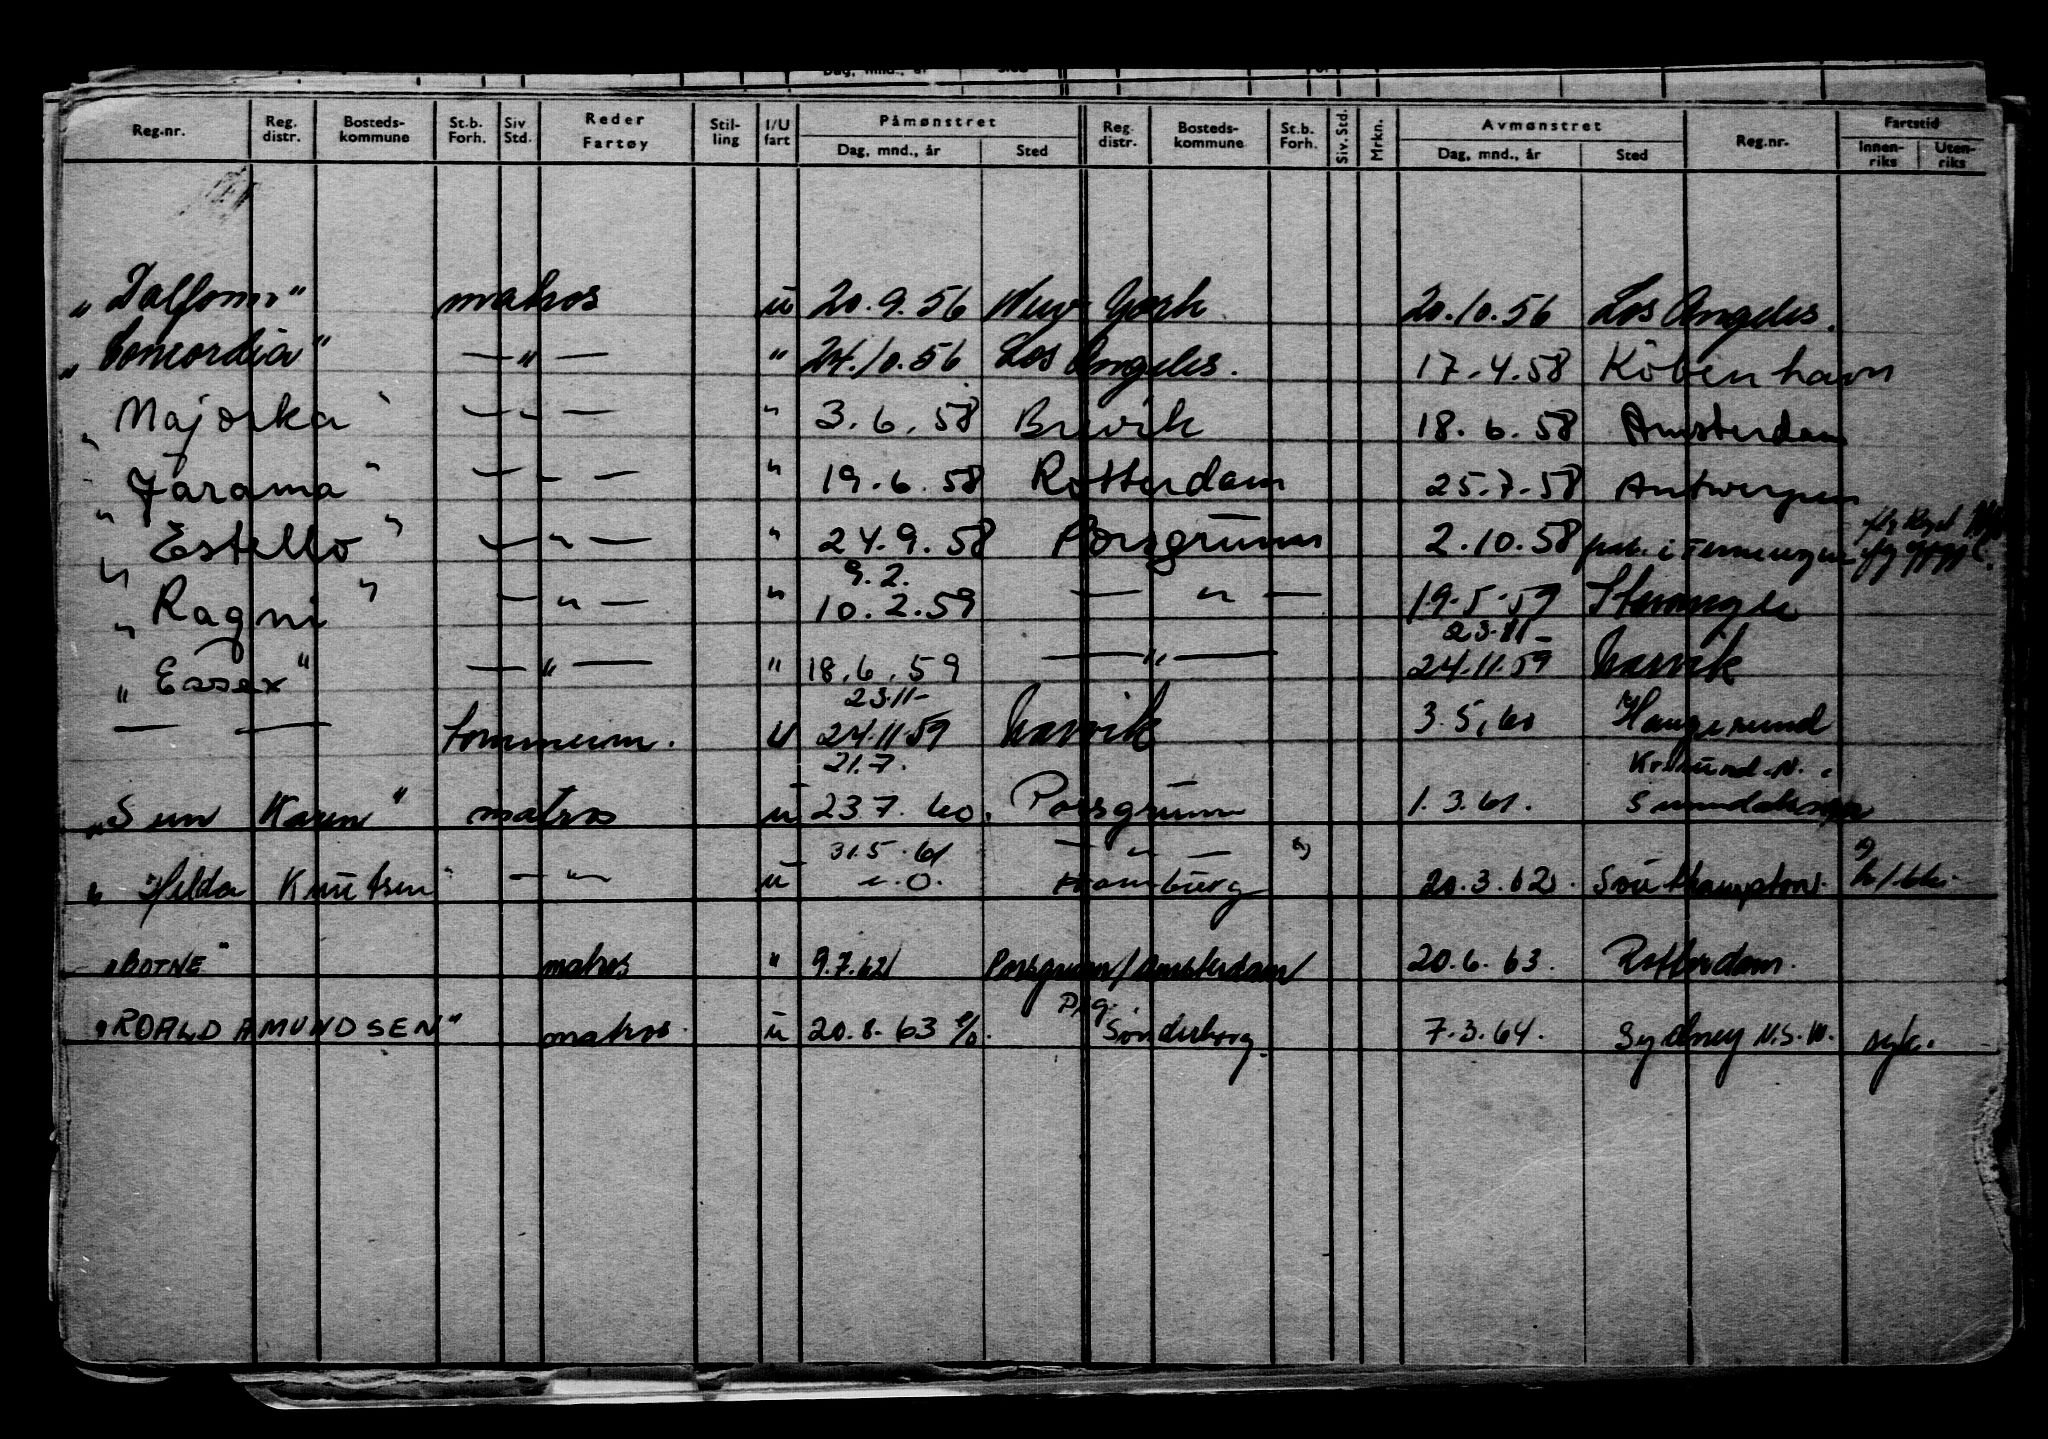 Reg.nr. Reg. distr. Bosteds-kommune St.b. Forh. Siv Std. Reder Fartøy Stil-ling I/U fart Påmønstret Dag, mnd., år Sted Reg. distr. Bosteds-kommune St.b. Forh. Siv. Std. Mrkn. Avmønstret Dag, mnd., år Sted Reg.nr. Fartstid Innen-riks Uten-riks
"Dalfonn" matros u 20.9.56 New York 20.10.56 Los Angeles.
"Concordia" — " — " 24.10.56 Los Angeles. 17.4.58 København
"Majorka" — " — " 3.6.58 Brevik 18.6.58 Amsterdam
"Jarama" — " — " 19.6.58 Rotterdam 25.7.58 Antwerpen
"Estello" — " — " 24.9.58 Porsgrunn 2.10.58 i Terneuzen
9.2.
"Ragni" — " — " 10.2.59 — " — 19.5.59 Stavanger
23.11-
"Essex" — " — " 18.6.59 — " — 24.11.59 Narvik
23.11-
— — tømmerm. u 24.11.59 Narvik 3.5.60 Haugesund
21.7. Kr.sund.N.
"Sun Karen" matros u 23.7.60. Porsgrunn 1.3.61. Sunndalsøra
31.5.61 — " —
"Hilda Knutsen" — " — u Hamburg 20.3.62. Southampton.
"BOTNE" matros " 9.7.62 Porsgrunn/Amsterdam/ 20.6.63. Rotterdam.
Prg.
"ROALD AMUNDSEN" matros u 20.8.63 Sønderborg. 7.3.64. Sydney N.S.W. syk.